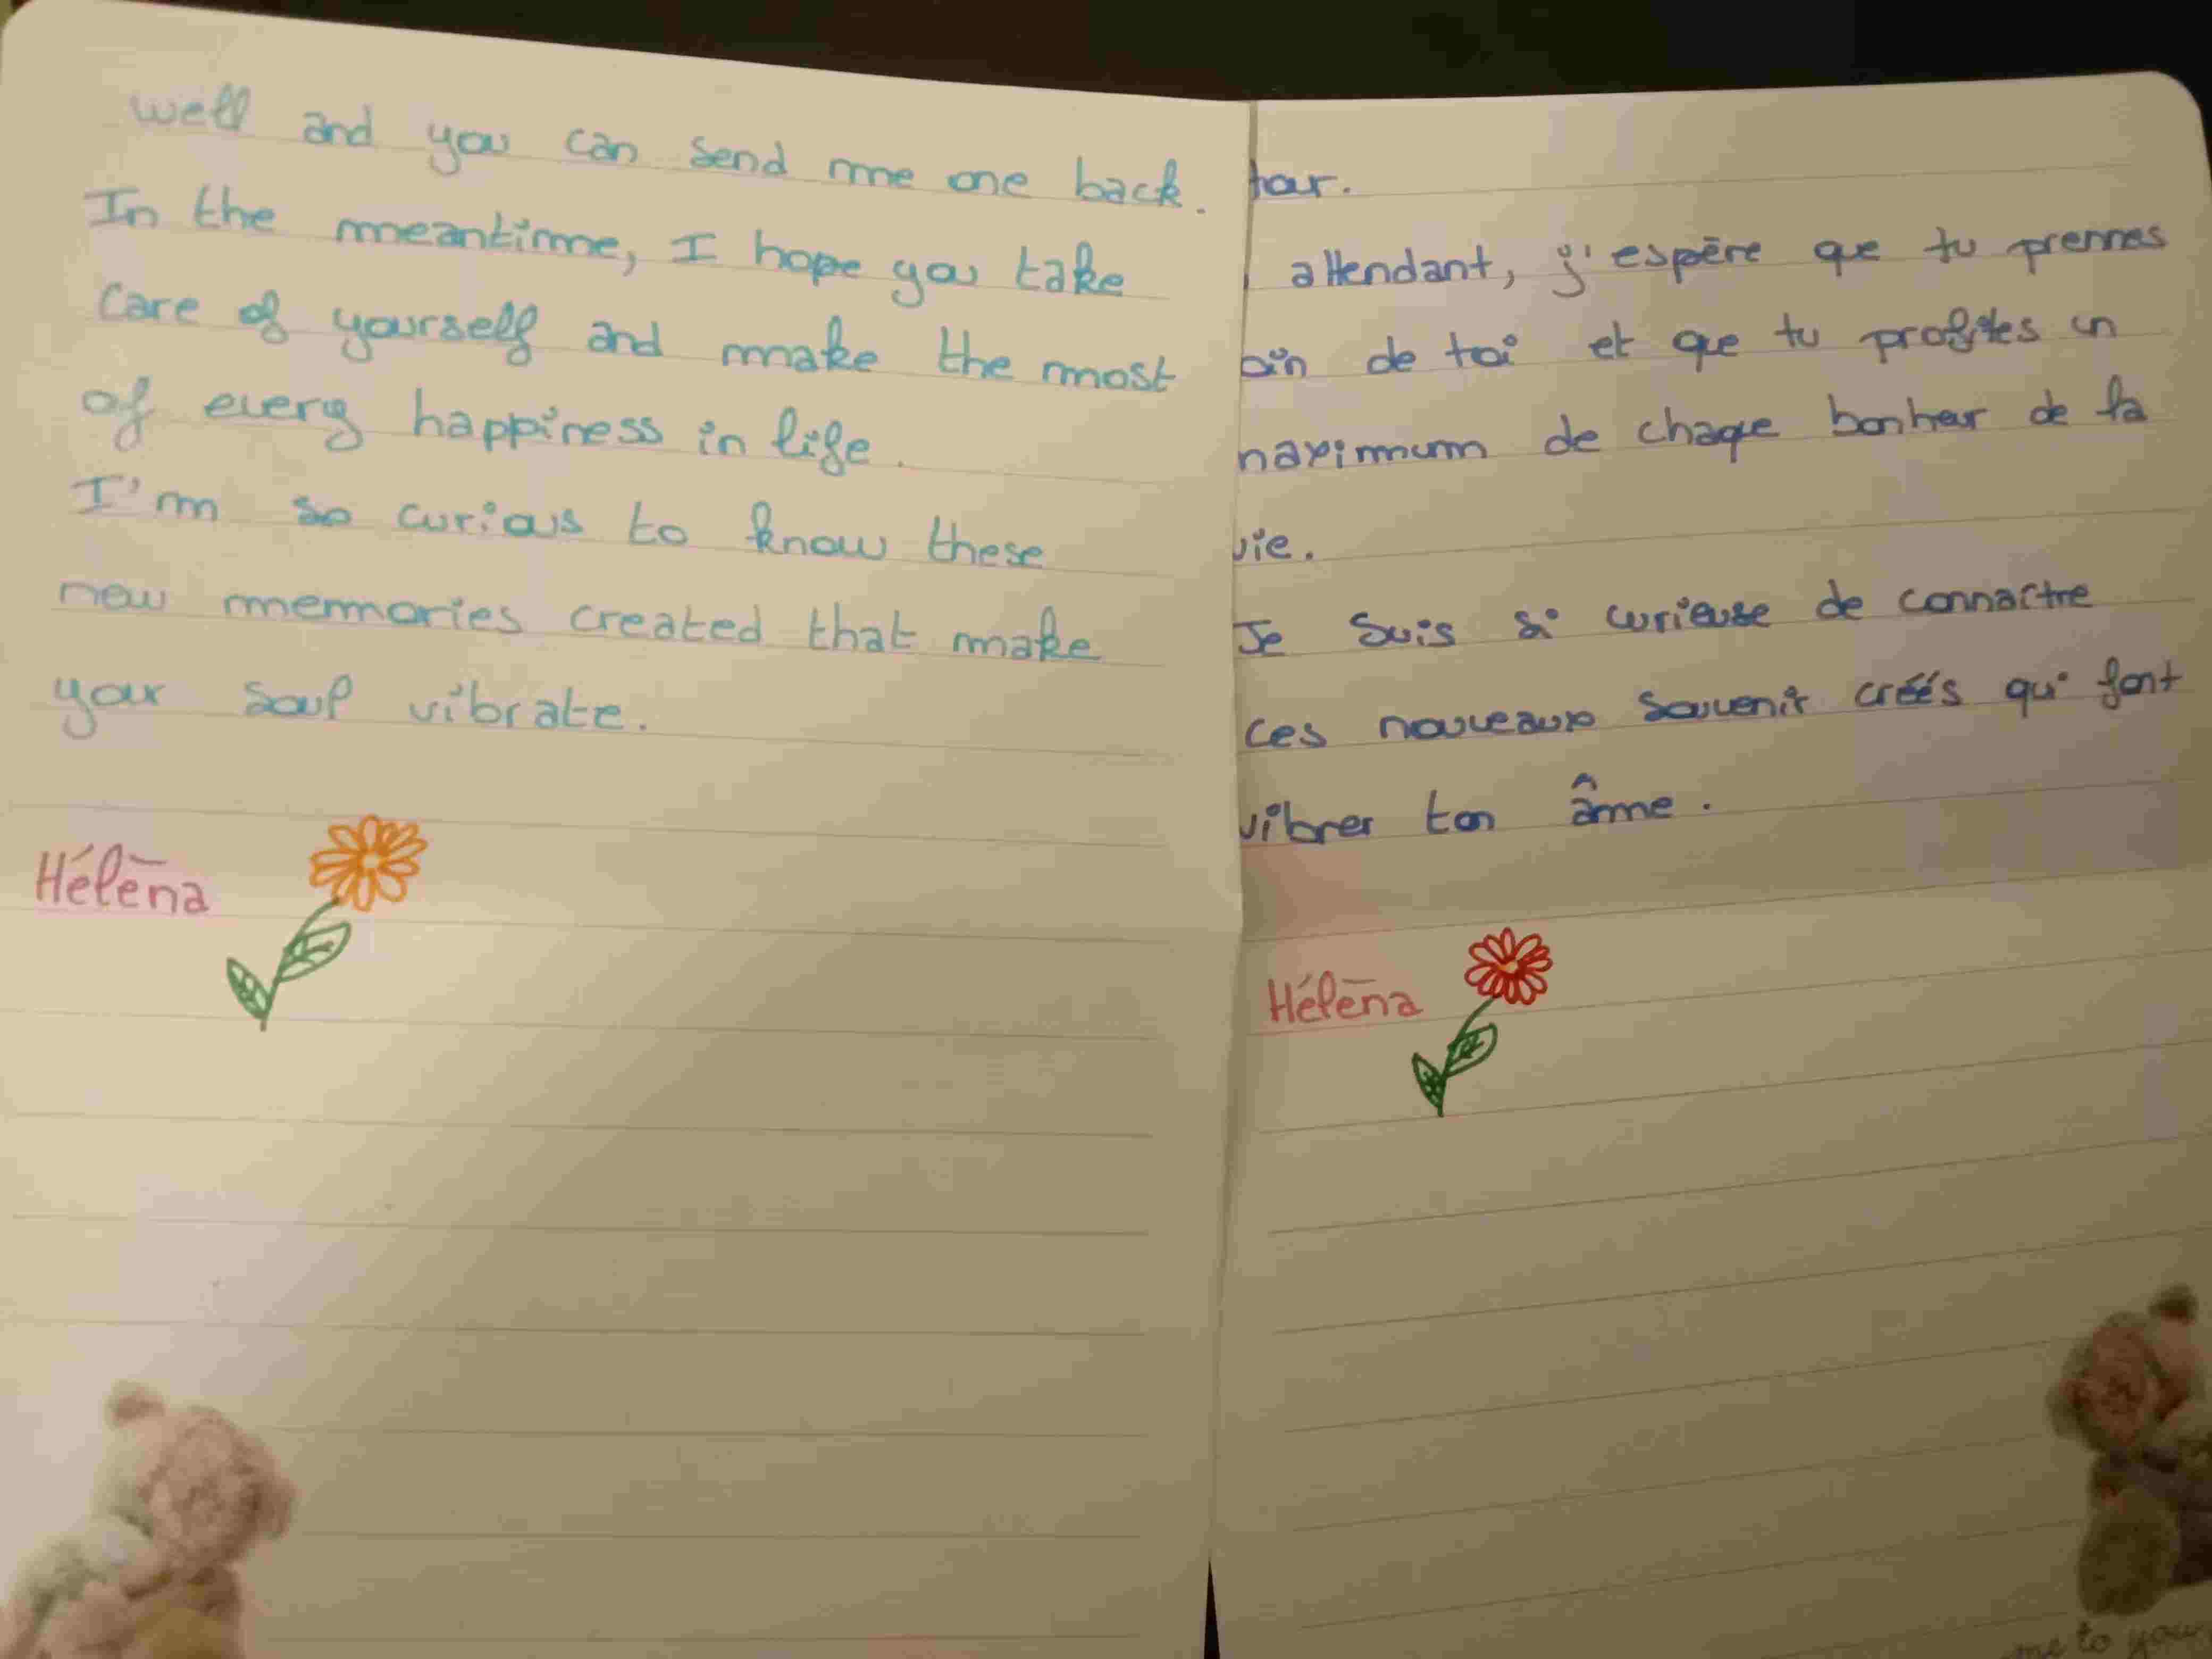 well and you can send me one back.
In the meantime, I hope you take
care of yourself and make the most
of every happiness in life.
I'm so curious to know these
new memories created that make
your soul vibrate.
Héléna
tour.
attendant, j'espère que tu prennes
oin de toi et que tu profites un
maximum de chaque bonheur de la
vie.
Je suis si curieuse de connaître
ces nouveaux souvenir créés qui font
vibrer ton âme.
Héléna
me to you